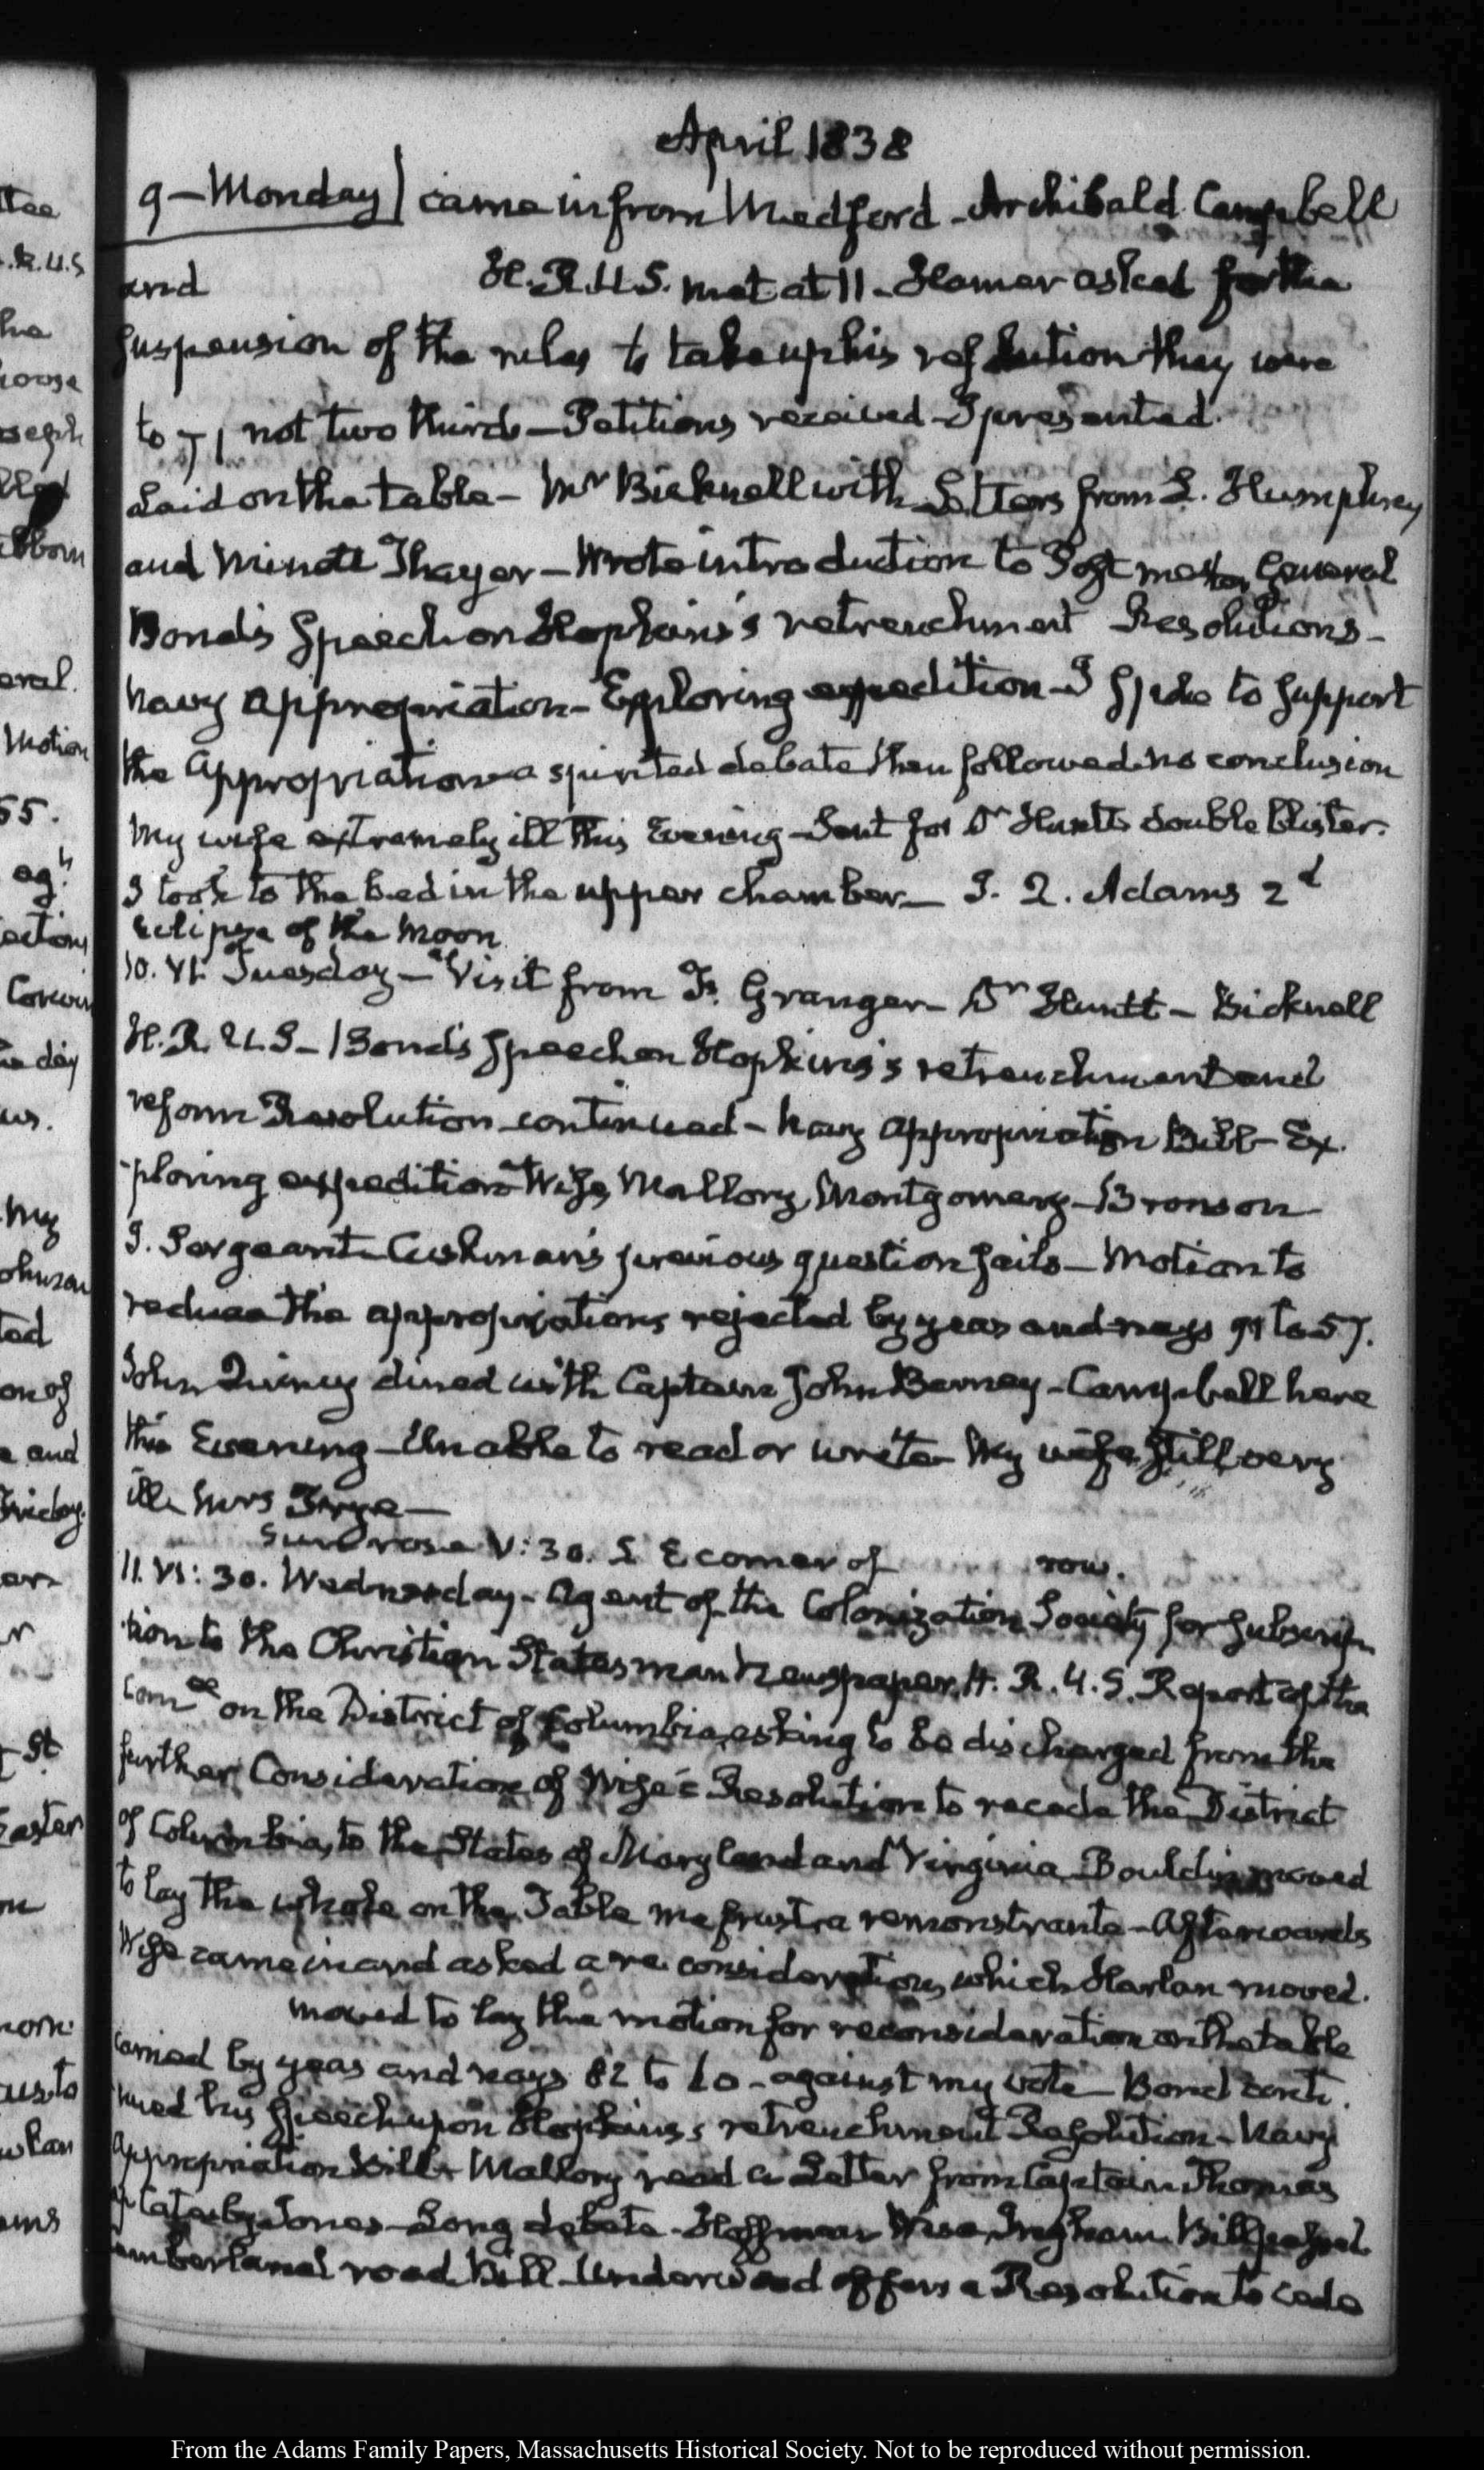 April 1838
9 - Monday) came in from Medford - Archibald Campbell
and H.R.U.S. met at 11 - Hamer asked for the
suspension of the rules to take up his resolution they were
to 71 not two thirds - Petitions received - I presented
Laid on the table - Mr Bicknell with Letters from L. Humphrey
and Minott Thayer - Wrote introduction to Post master General
Bond's Speech on Hopkins's retrenchment Resolutions -
Navy appropriation - Exploring expedition - I spoke to support
the appropriation - a spirited debate then followed. no conclusion
My wife extremely ill this Evening - Sent for Dr Huntt double blister.
I took to the bed in the upper chamber - J. Q. Adams 2d
Eclipse of the Moon
10. VI. Tuesday - Visit from F. Granger - Dr Huntt - Bicknell
H.R.U.S - Bond's Speech on Hopkins's retrenchment and
reform Resolution continued - Navy appropriation Bill - Ex.
ploring expedition - Wise, Mallory, Montgomery - Bronson
J. Sergeant - Cushman's previous question fails - Motion to
reduce the appropriations rejected by yeas and nays 91 to 57.
John Quincy dined with Captain John Barney - Campbell here
this Evening - Unable to read or write - My wife still very
ill - Mrs Frye -
Sun rose V:30. S E corner of row.
11. VI:30. Wednesday - Agent of the Colonization Society for subscrip
tion to the Christian Statesman Newspaper. H.R.U.S. Report of the
Comee on the District of Columbia, asking to be discharged from the
further Consideration of Wise's Resolution to recede the District
of Columbia, to the States of Maryland and Virginia. Bouldin moved
to lay the whole on the Table me frustra remonstrante - Afterwards
Wise came in and asked a re consideration, which Harlan moved.
moved to lay the motion for reconsideration on the table
carried by yeas and nays 82 to 60 - against my vote - Bond conti.
nued his speech upon Hopkins's retrenchment Resolution - Navy
appropriation Bill - Mallory read a Letter from Captain Thomas
Ap Catesby Jones - Long debate - Hoffman Wise, Ingham. Bill passed
Cumberland road Bill - Underwood offers a Resolution to cede
From the Adams Family Papers, Massachusetts Historical Society. Not to be reproduced without permission.